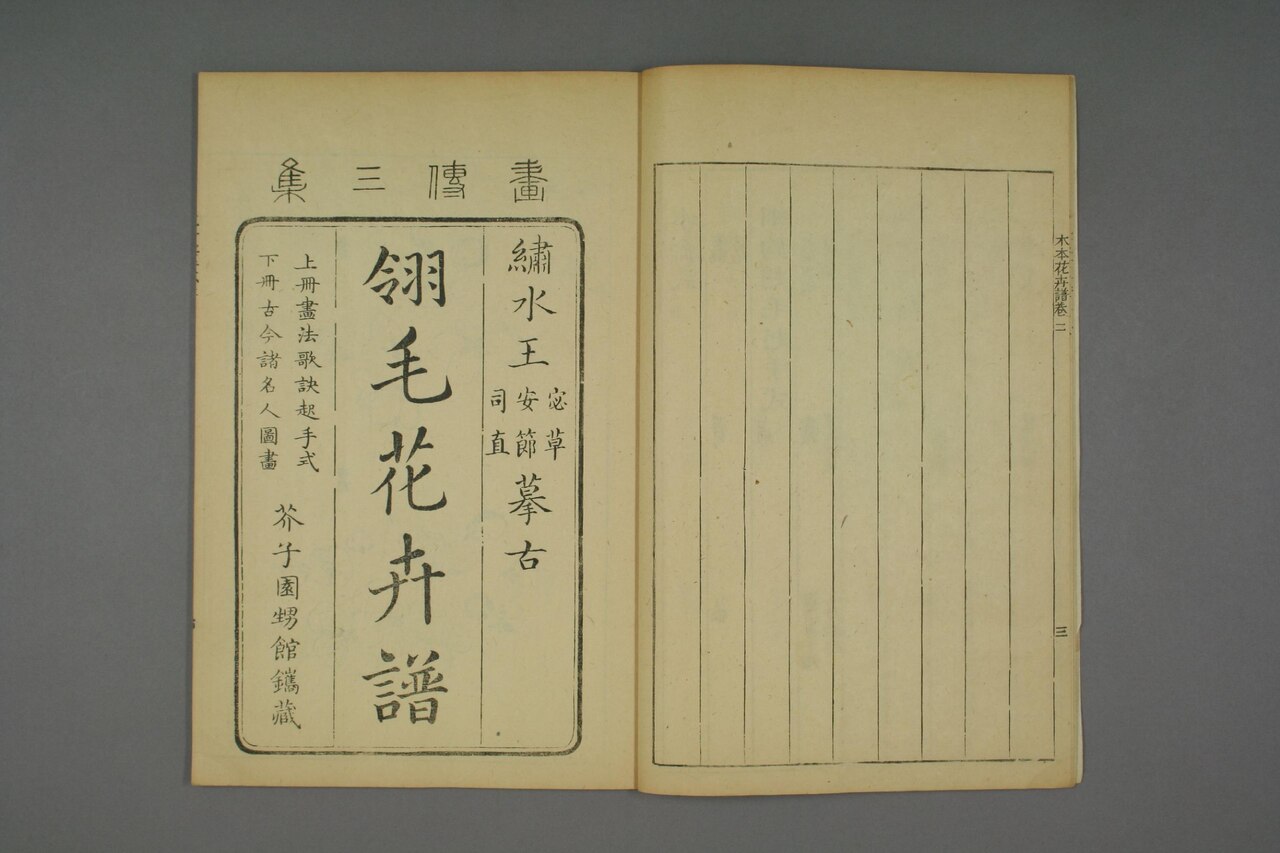 木本花卉譜卷二
三
畫傳三集
繡水王
宓草
安節
司直
摹古
翎毛花卉譜
上冊畫法歌訣起手式
下冊古今諸名人圖畫
芥子園甥館鐫藏